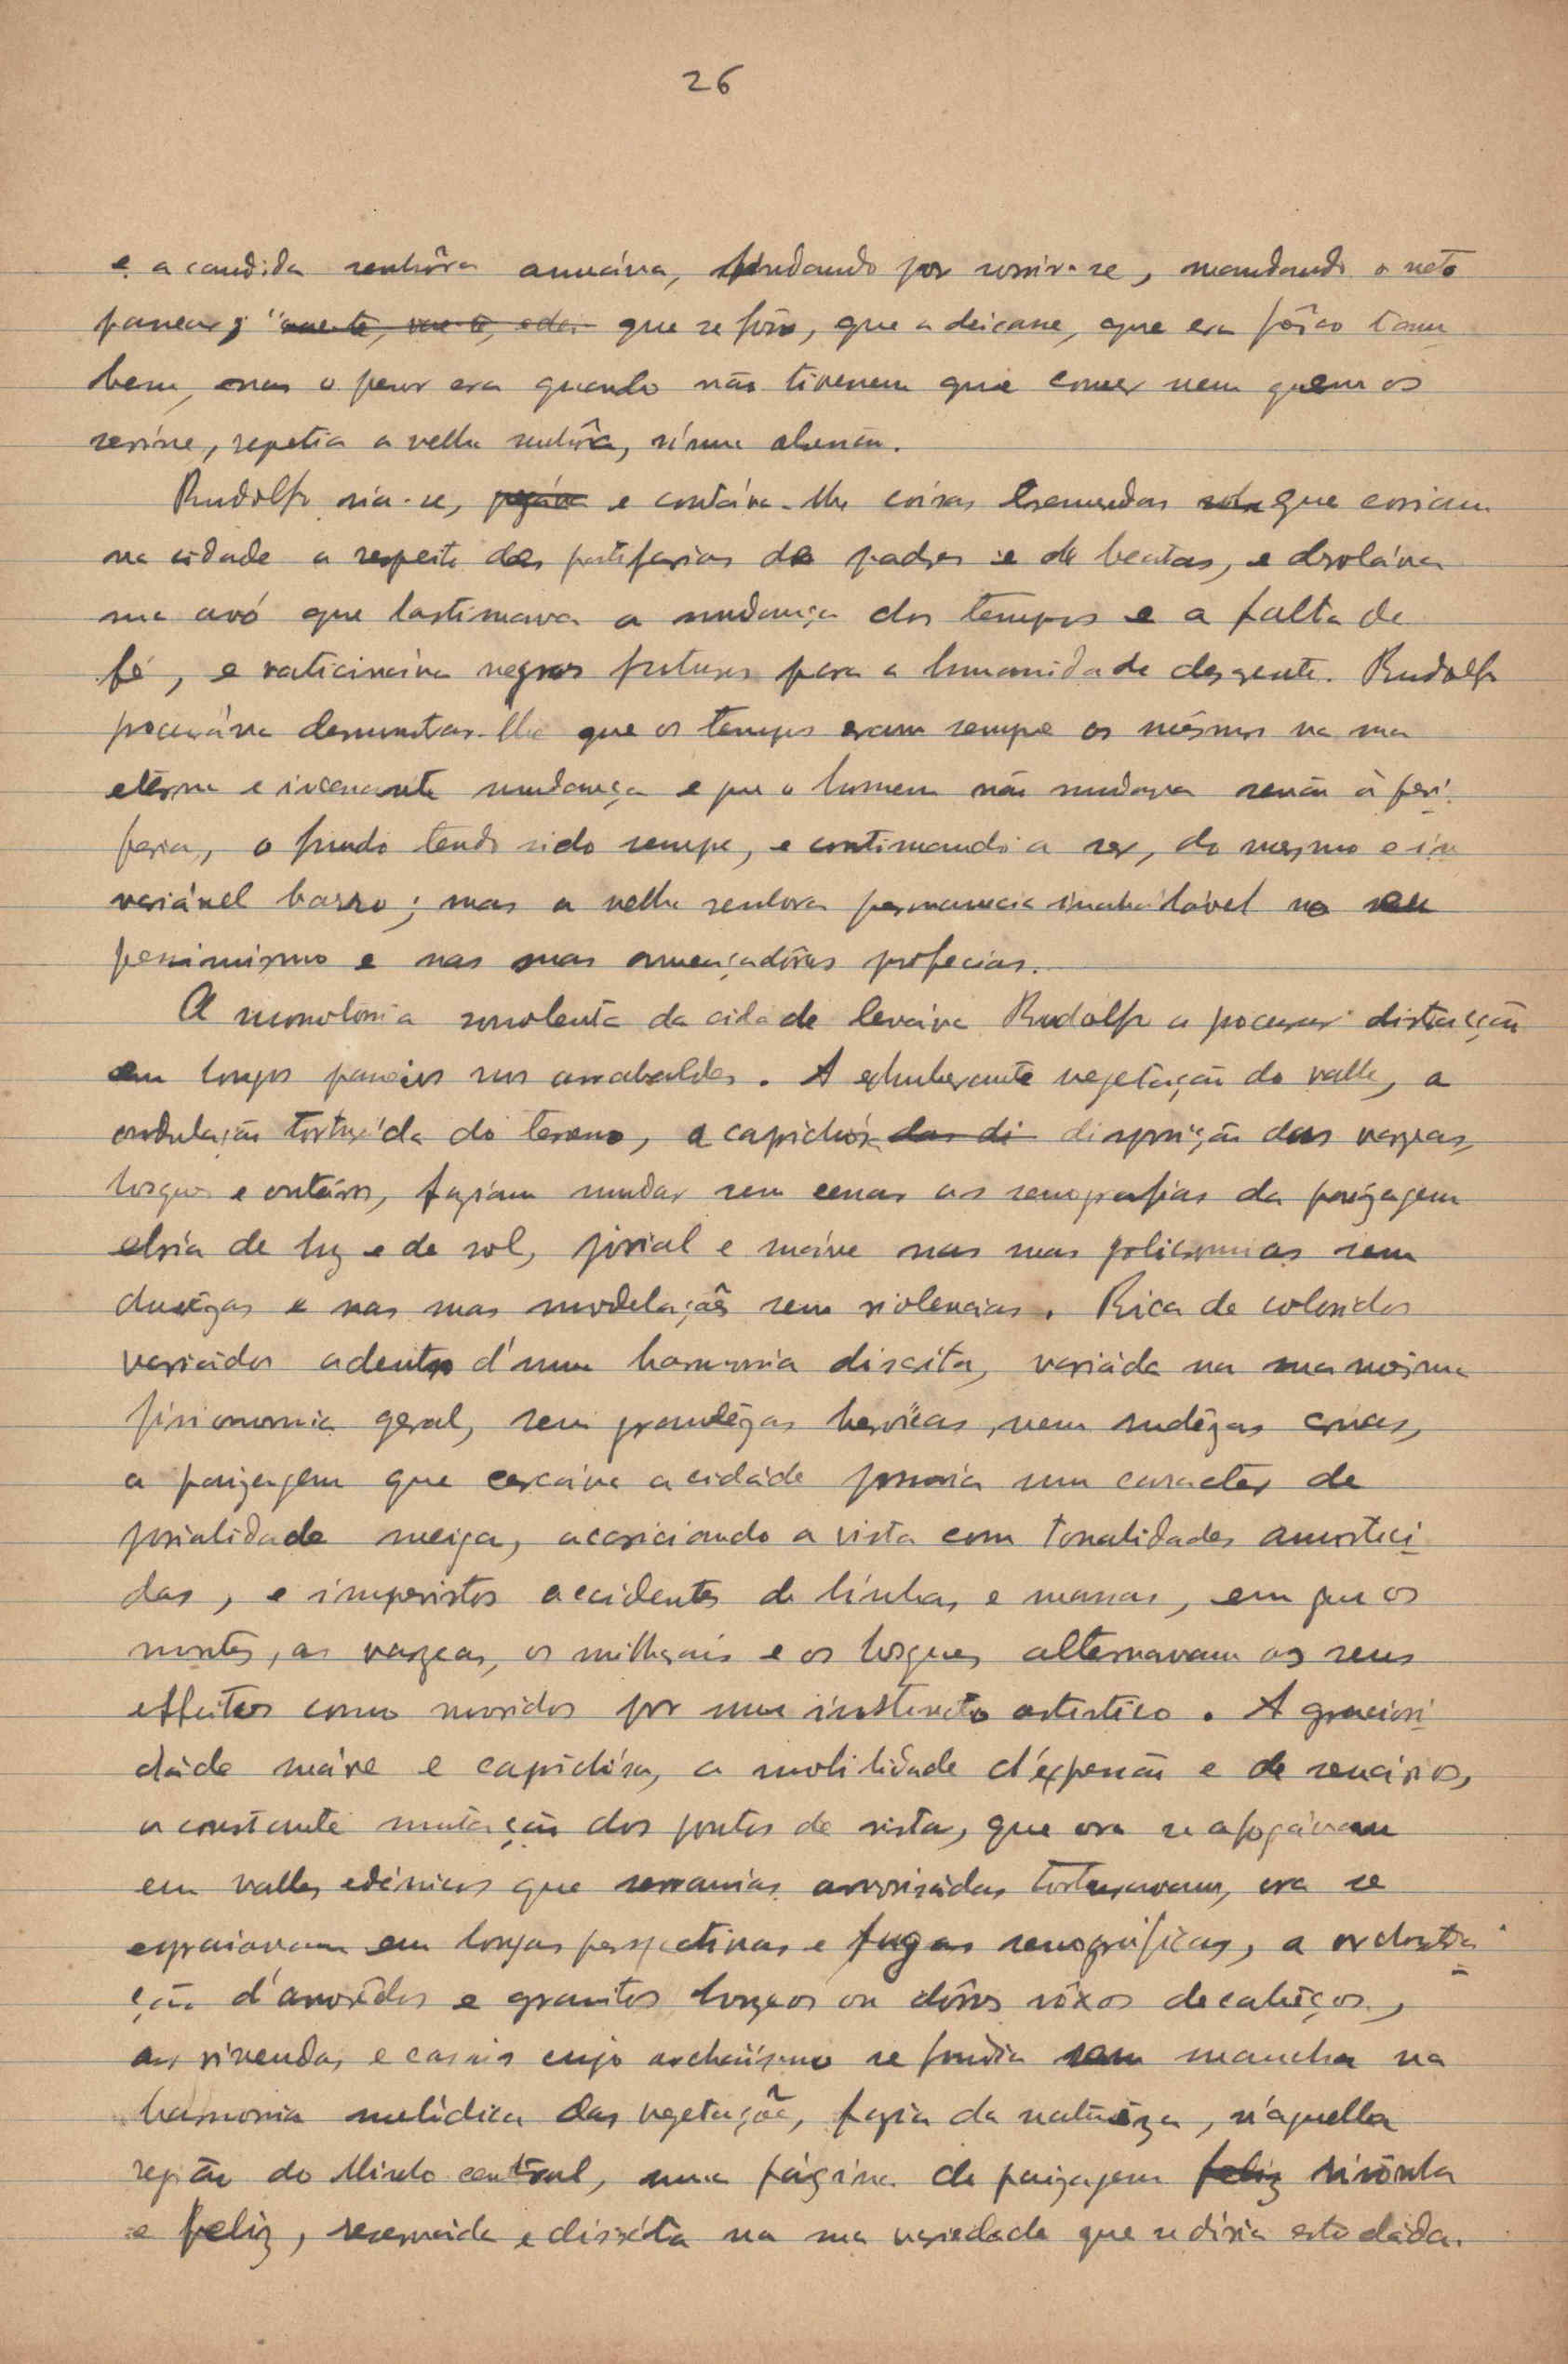 26
e a candida senhôra amuáva, findando por sorrir-se, mandando o neto
passear; que se fôsse, que a deixasse, que era fôsco tam
bem, mas o peor era quando não tivessem que comer nem quem os
servisse, repetia a velha senhôra,
Rudolfo ria-se, e contáva-lhe coisas tremendas que corriam
na cidade a respeito das patifarias de padres e de beatas, e desoláva a
sua avó que lastimava a mudança dos tempos e a falta de
fé, e vaticináva negros futuros para a humanidade descrente. Rudolfo
procuráva demonstrar-lhe que os tempos eram sempre os mesmos na sua
eterna e incessante mudança e que o homem não mudava senão á peri
feria, o fundo tendo sido sempre, e continuando a ser, do mesmo e in
variável barro; mas a velha senhora permanecia inabalável no seu
pessimismo e nas suas ameaçadôras profecias.
A monotonia sonolenta da cidade leváva Rudolfo a procurar distracção
em longos passeios nos arrabaldes. A exhuberante vegetação do valle, a
ondulação torturáda do terreno, a caprichósa disposição das varzeas,
bosques e outeiros, faziam mudar sem cessar as scenografias da paizagem
ebria de luz e de sol, jovial e suáve nas suas policromias sem
durêzas e nas suas modelaçães sem violencias. Rica de coloridos
variádos adentro d'uma harmonia discréta, variáda na sua mesma
fisionomia geral, sem grandêzas heroicas, nem rudêzas cruas,
a paizagem que cercáva a cidáde possuia um caracter de
jovialidade meiga, acariciando a vista com tonalidades amorteci
das, e imprevistos accidentes de linhas e massas, em que os
montes, as varzeas, os milharais e os bosques alternavam os seus
effeitos como movidos por um instincto artistico. A graciosi
dáde suáve e caprichósa, a mobilidade d'expressão e de scenários,
a constante mutação dos pontos de vista, que ora se afogávam
em valles edénicos que serranias arvorizádas torturavam, ora se
espraiavam em longas perspectivas e fugas scenográficas, a orchestra
ção d'arvorêdos e granitos ou dôrsos rôxos de cabêços,
as vivendas e casais cujo archaismo se fundia sem mancha na
harmonia melódica das vegetaçõe, fazia da naturêza, n'aquella
região do Minho central, uma página de paizagem feliz risônha
e feliz, reservada e discréta na sua variedade que se diria estudáda.